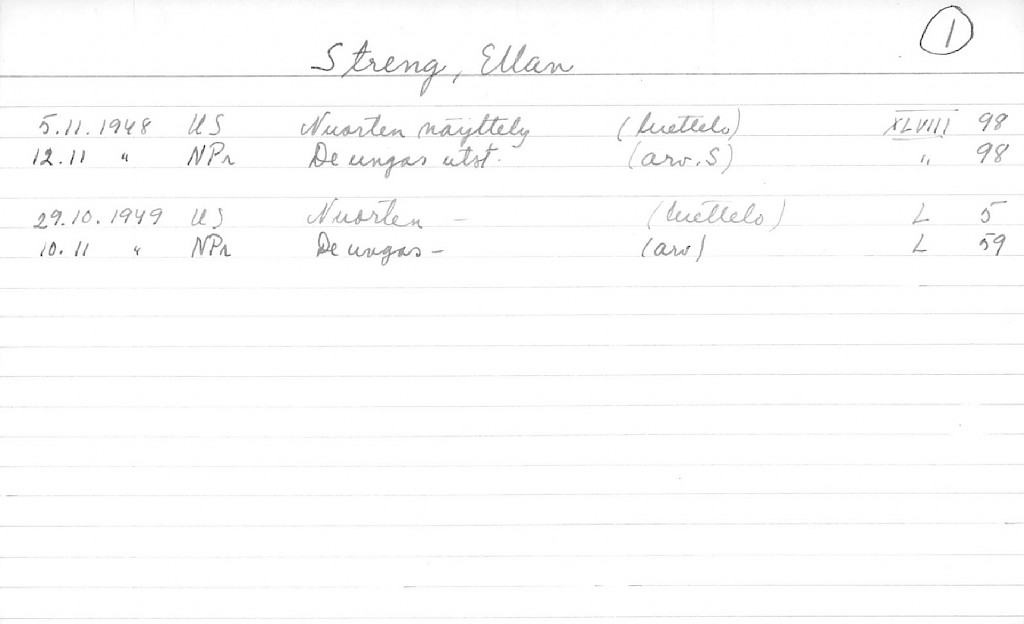 1
Streng, Ellan
5.11.1948 US Nuorten näyttely (luettelo) XLVIII 98
12.11 " NPr De ungas utst. (arv. S) " 98
29.10.1949 US Nuorten – (luettelo) L 5
10.11 " NPr De ungas – (arv) L 59